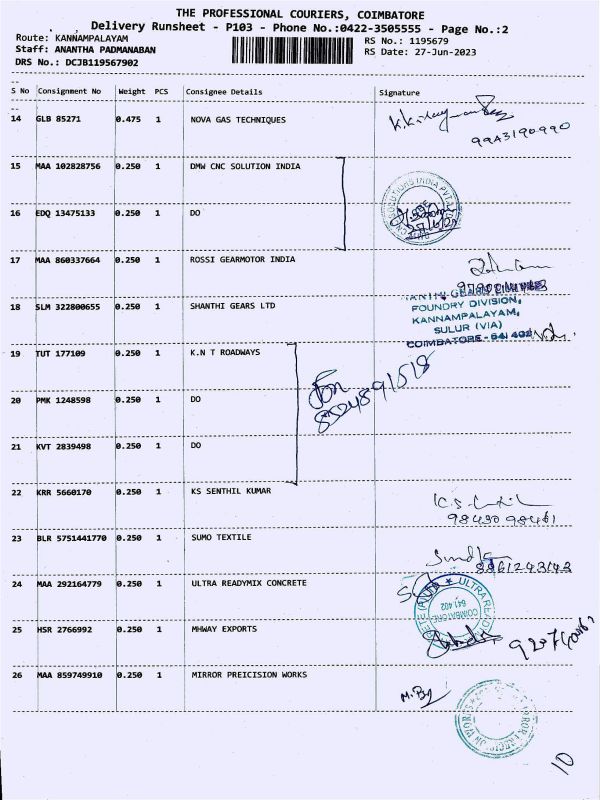 THE PROFESSIONAL COURIERS, COIMBATORE
Delivery Runsheet - P103 - Phone No.:0422-3505555 - Page No.:2
Route: KANNAMPALAYAM
Staff: ANANTHA PADMANABAN
DRS No.: DCJB119567902
RS No.: 1195679
RS Date: 27-Jun-2023
S No Consignment No Weight PCS Consignee Details Signature
14 GLB 85271 0.475 1 NOVA GAS TECHNIQUES
15 MAA 102828756 0.250 1 DMW CNC SOLUTION INDIA
16 EDQ 13475133 0.250 1 DO
17 MAA 860337664 0.250 1 ROSSI GEARMOTOR INDIA
18 SLM 322800655 0.250 1 SHANTHI GEARS LTD
FOUNDRY DIVISION,
KANNAMPALAYAM,
SULUR (VIA)
COIMBATORE - 641 402
19 TUT 177109 0.250 1 K.N T ROADWAYS
20 PMK 1248598 0.250 1 DO
8524891518
21 KVT 2839498 0.250 1 DO
22 KRR 5660170 0.250 1 KS SENTHIL KUMAR
98430 98461
23 BLR 5751441770 0.250 1 SUMO TEXTILE
8861243143
24 MAA 292164779 0.250 1 ULTRA READYMIX CONCRETE
COIMBATORE
641 402
25 HSR 2766992 0.250 1 MHWAY EXPORTS
26 MAA 859749910 0.250 1 MIRROR PREICISION WORKS
10